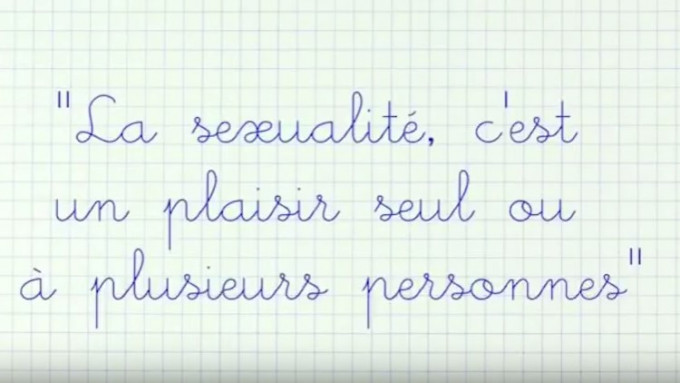 "La sexualité, c'est
un plaisir seul ou
à plusieurs personnes"